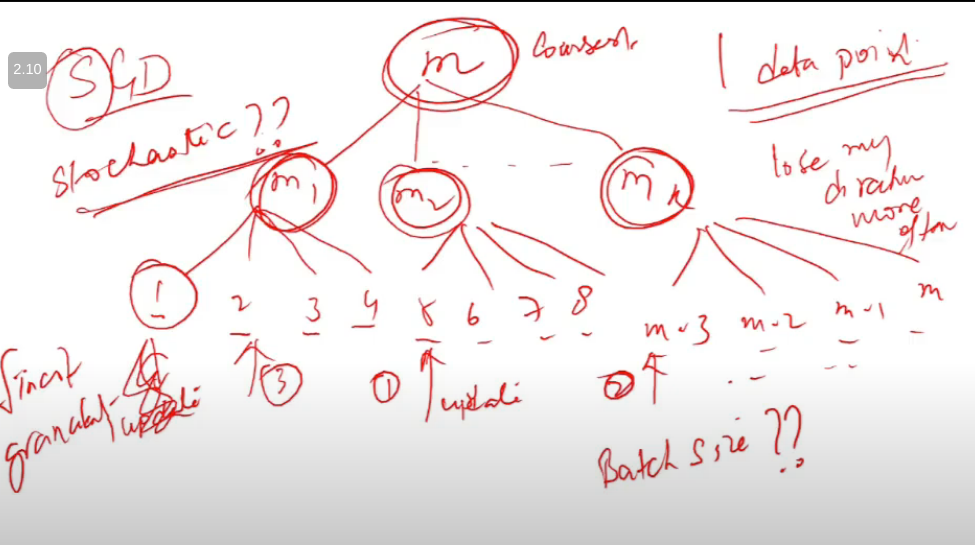 2.10
SGD
Stochastic??
m Coarsest
1 data point
lose my
direction
more
often
m1 m2 - - - mk
1 2 3 4 5 6 7 8 m-3 m-2 m-1 m
finest
granular
update
3
1 update
2
Batch Size??